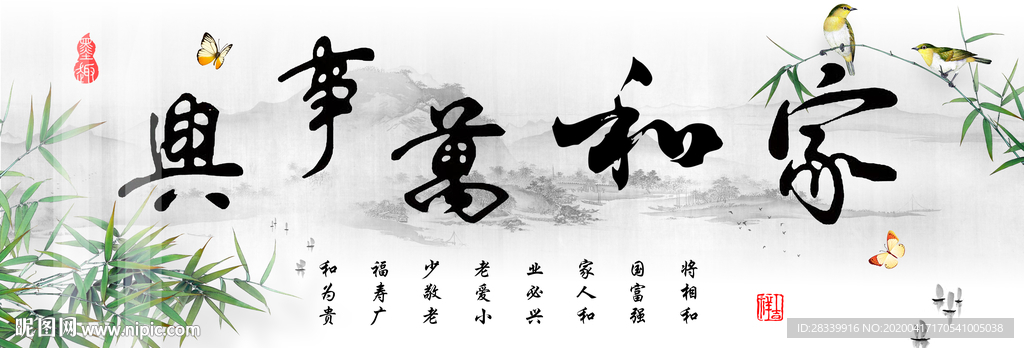 家和萬事興
将相和
国富强
家人和
业必兴
老爱小
少敬老
福寿广
和为贵
墨趣
昵图网 www.nipic.com
ID:28339916 NO:20200417170541005038